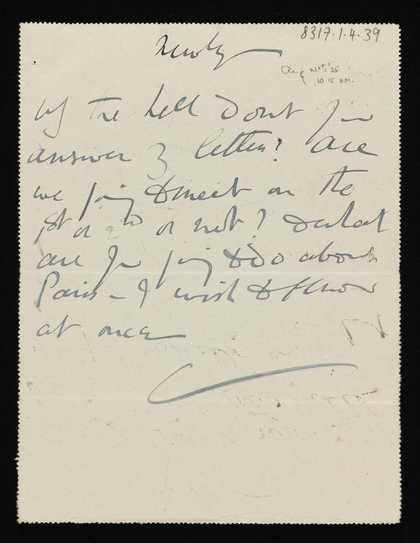 8317.1.4.39
Newly
Aug
10.15 AM.
Why the hell dont you
answer my letters? Are
we going to meet on the
1st or 2nd or not? & what
are you going to do about
Paris – I wish to know
at once